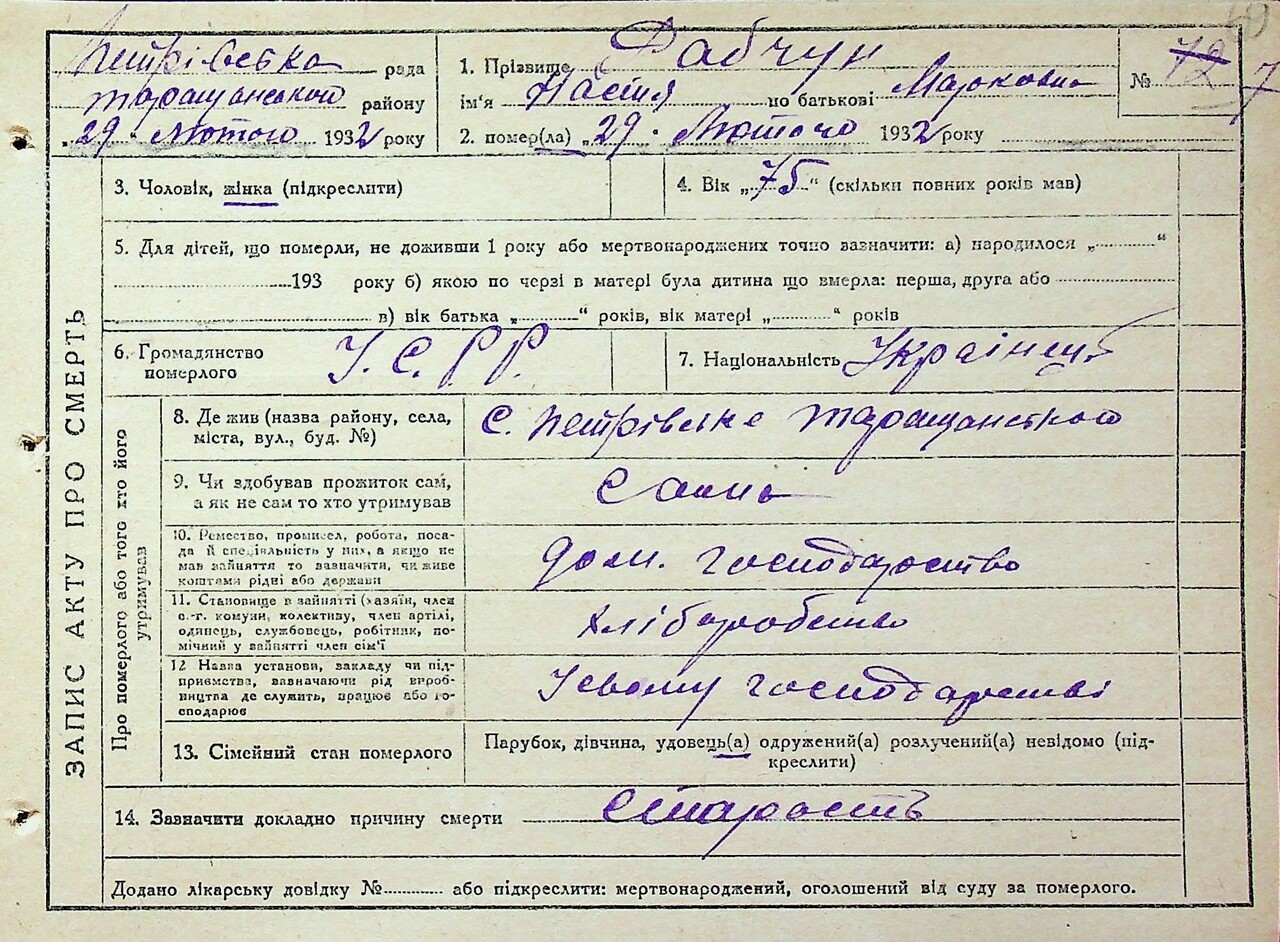 Петрівська рада
Таращанського району
„29 “ Лютого 1932 року
1. Прізвище Бабчук
ім'я Настя по батькові Марковна
№ 72 7
2. помер(ла) „29 “ Лютого 1932 року
3. Чоловік, жінка (підкреслити)
4. Вік „75“ (скільки повних років мав)
5. Для дітей, що померли, не доживши 1 року або мертвонароджених точно вазначити: а) народилося „ “
193 року б) якою по черзі в матері була дитина що вмерла: перша, друга або
в) вік батька „ “ років, вік матері „ “ років
6. Громадянство
померлого
У. С. Р. Р.
7. Національність Українец
ЗАПИС АКТУ ПРО СМЕРТЬ
Про померлого або того хто його
утримував
8. Де жив (назва району, села,
міста, вул., буд. №)
с. Петрівське Таращанського
9. Чи здобував прожиток сам,
а як не сам то хто утримував
Сама
10. Ремество, промисел, робота, поса-
да й спеціяльність у них, а якщо не
мав зайняття то вазначити, чи живе
коштами рідні або держави
дом. господарство
11. Становище в зайнятті (хазяїн, член
с.-г. комуни, колективу, член артілі,
одинець, службовець, робітник, по-
мічний у вайнятті член сім'ї
хліборобство
12 Навва установи, закладу чи під-
приємства, вазначаючи рід вироб-
ництва де служить, працює або го-
сподарює
У свому господарстві
13. Сімейний стан померлого
Парубок, дівчина, удовець(а) одружений(а) розлучений(а) невідомо (під-
креслити)
14. Зазначити докладно причину смерти Старость
Додано лікарську довідку № або підкреслити: мертвонароджений, оголошений від суду за померлого.